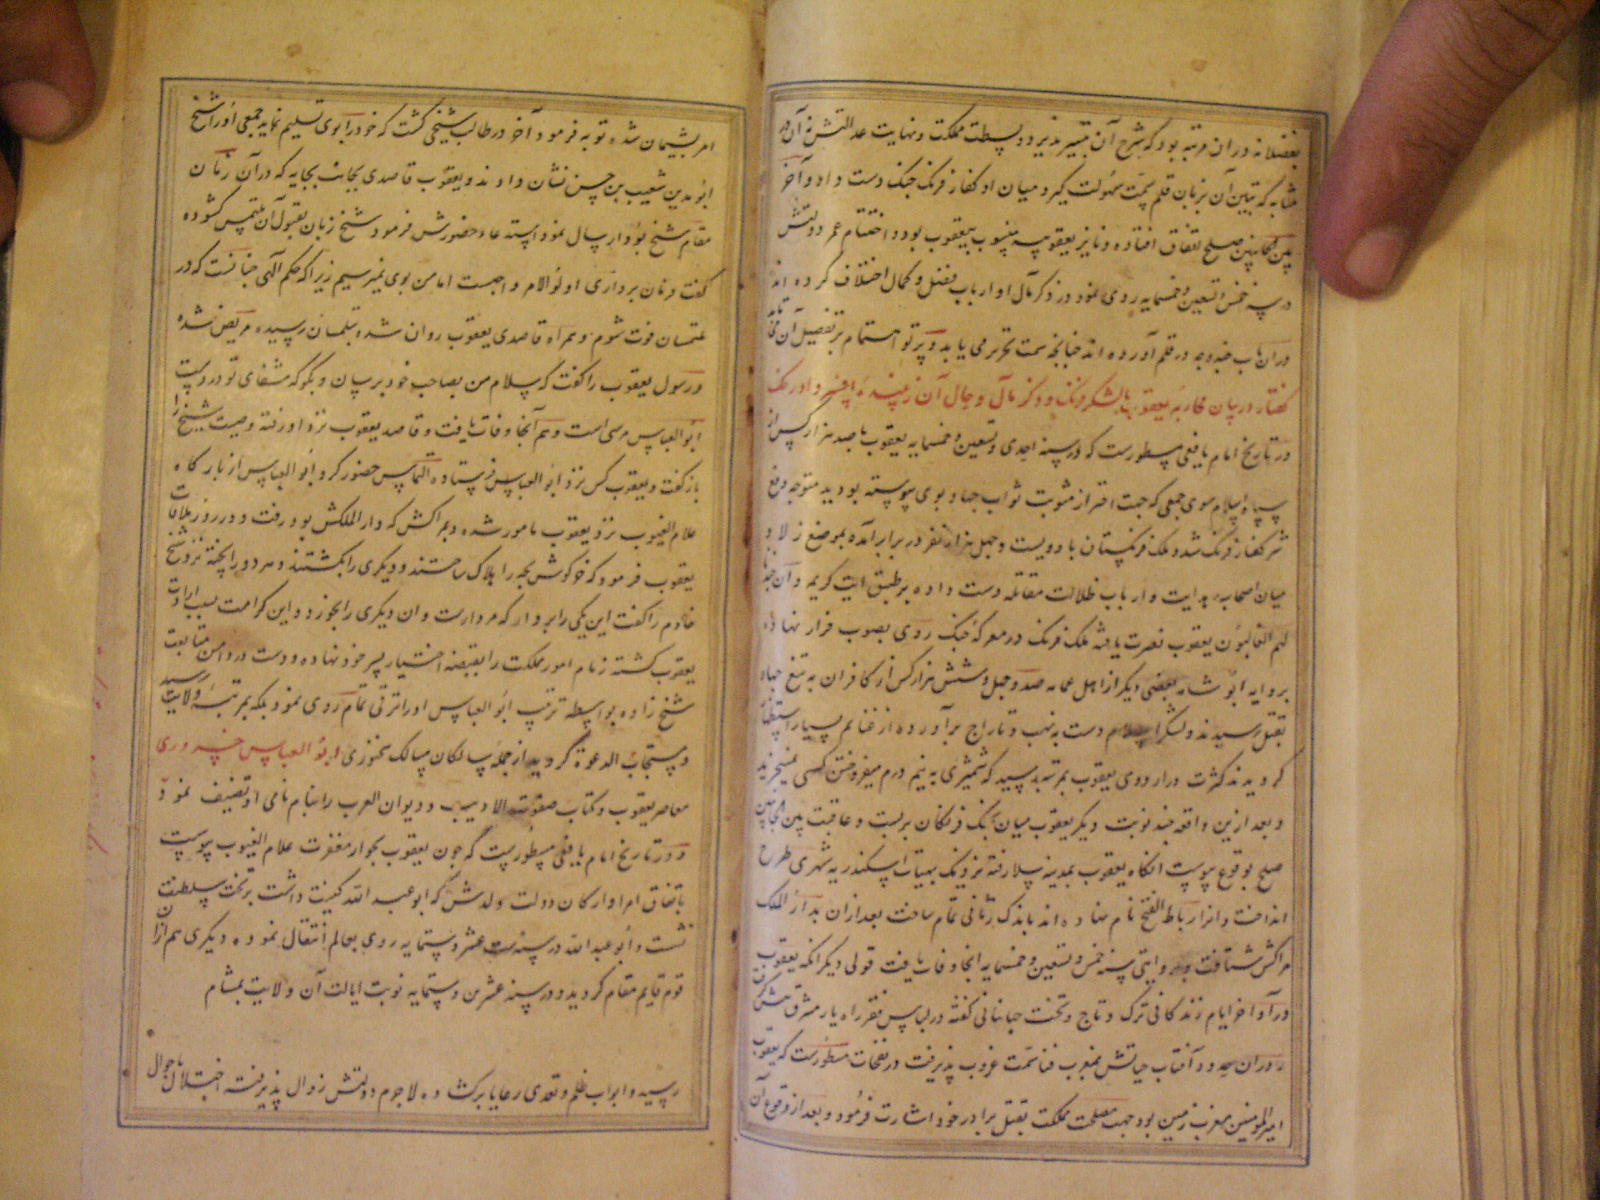 بفضلا نه دران مرتبه بود که شرح آن تیسیر پذیرد و بسطت مملکت و نهایت عدالتش نه آن
مثابه که تبیین آن بزبان قلم سمت سهولت گیرد میان او و کفار فرنک جنک دست داد و آخر
بین الجانبین صلح اتفاق افتاده و دنانیر یعقوبیه منسوب بیعقوب بود و اختتام عمر دولتش
در سنه خمس و تسعین و خمسمایه روی نمود و در ذکر مآل او ارباب فضل و کمال اختلاف کرده اند
دران باب چند وجه در قلم آورده اند چنانچه سمت تحریر می یابد و پرتو اهتمام بر تفصیل آن
گفتار در بیان محاربه یعقوب بالشکر فرنک و ذکر مآل و حال آن زیبنده افسر و اورنک
در تاریخ امام یافعی مسطورست که در سنه احدی و تسعین و خمسمایه یعقوب با صد هزار کس از
سپاه اسلام سوی جمعی که جهت احراز مثوبت ثواب جهاد بوی پیوسته بودند متوجه دفع
شر کفار فرنک شد و ملک فرنکستان با دویست و چهل هزار نفر در برابر آمده بموضع زلاقه
میان اصحاب هدایت و ارباب ظلالت مقاتله دست داده بر طبق آیت کریمه و ان جندنا
لهم الغالبون یعقوب نصرت یافته ملک فرنک در معرکه جنک روی بصوب فرار نهاده
بروایه ابو شامه بعضی دیگر از اهل عمامه صد و چهل و شش هزار کس از کافران به تیغ جهاد
بقتل رسیدند و لشکر اسلام دست به نهب و تاراج برآورده از غنایم بسیار استظهار
کردیدند کثرت در اردوی یعقوب بمرتبه رسید که شمشیری به نیم درم میفروختند کسی نمیخرید
و بعد ازین واقعه چند نوبت دیگر یعقوب میان بجنک فرنکان بربست و عاقبت بین الجانبین
صلح بوقوع پیوست آنکاه یعقوب بمدینه سلا رفته نزدیک بهیئات اسکندریه شهری طرح
انداخت و انرا رباط الفتح نام نهاده اند باندک زمانی تمام ساخت بعد ازان بدار الملک
مراکش شتافت و بروایتی سنه خمس و تسعین و خمسمایه انجا وفات یافت قولی دیگر آنکه یعقوب
در آواخر ایام زندگانی ترک و تاج و تخت جهانبانی گفته در لباس فقر راه یار مشرق پیش
دران حدود آفتاب حیاتش بمغرب فنا سمت غروب پذیرفت در نفحات مسطورست که یعقوب
امیر المومنین مغرب زمین بود جهت مصلحت مملکت بقتل برادر خود اشارت فرمود و بعد از وقوع آن
امر پشیمان شده توبه فرمود آخر در طالب شیخی گشت که خود را بوی تسلیم نماید جمعی او را شیخ
ابو مدین شعیب بن حسن نشان دادند و یعقوب قاصدی بجانب بجایه که در آن زمان
مقام شیخ بود ارسال نمود استدعاء حضورش فرمود شیخ زبان بقبول آن ملتمس کشوده
گفت فرمان برداری اولو الامر واجبست اما من بوی نمیرسیم زیرا که حکم الهی چنانست که در
تلمسان فوت شوم و همراه قاصدی یعقوب روان شده بتلمسان رسیده مریض شده
و رسول یعقوب را گفت که سلام من بصاحب خود برسان و بگو که شفای تو در دست
ابو العباس مرسی است و هم آنجا وفات یافت و قاصد یعقوب نزد او رفته وصیت شیخ را
باز گفت و یعقوب کس نزد ابو العباس فرستاده التماس حضور کرد و ابو العباس از بارکاه
علام الغیوب نزد یعقوب مامور شده و بمراکش که دار الملکش بود رفت و در روز ملاقات
یعقوب فرمود که خوکوش بچه را هلاک ساختند و دیگری را بکشتند و هر دو را پخته نزد شیخ
خادم را گفت این یکی را بردار که مردارست و ان دیگری را بخورد و این کرامت سبب ارادت
یعقوب کشته زمام امور مملکت را بقبضه اختیار پسر خود نهاده و دست در دامن متابعت
شیخ زاده بواسطه تربیت ابو العباس او را ترقی تمام روی نمود بلکه بمرتبه ولایت رسید
و مستجاب الدعوة گردید از جمله سالکان مسالک سخنوری ابو العباس جروری
معاصر یعقوب و کتاب صفوة الادیب و دیوان العرب را بنام نامی او تصنیف نمود
و در تاریخ امام یافعی مسطورست که چون یعقوب بجوار مغفرت علام الغیوب پیوست
باتفاق امرا و ارکان دولت ولدش که ابو عبد الله کنیت داشت بر تخت سلطنت
نشست و ابو عبد الله در سنه ست عشر و ستمایه روی بعالم انتقال نموده دیگری هم ازان
قوم قایم مقام گردید و در سنه عشرین و ستمایه نوبت ایالت آن ولایت بهشام
رسید و ابواب ظلم و تعدی رعایا برکشاده لاجرم دولتش زوال پذیرفت اختلال باحوال